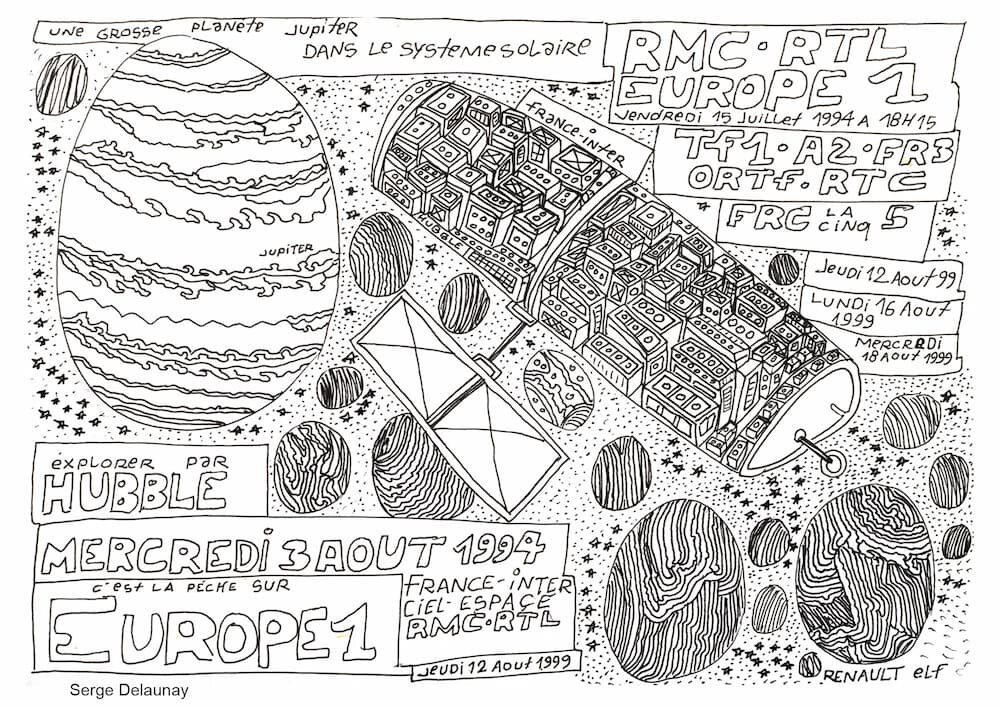 UNE GROSSE PLANÈTE JUPITER
DANS LE SYSTEME SOLAIRE
RMC·RTL
EUROPE 1
VENDREDI 15 JUILLET 1994 A 18H15
france-inter
Tf1·A2·FR3
ORTf·RTC
FRC LA CINQ 5
JUPITER
HUBBLE
JEUDI 12 AOUT 99
LUNDI 16 AOUT
1999
MERCREDI
18 AOUT 1999
EXPLORER PAR
HUBBLE
MERCREDI 3 AOUT 1994
C'EST LA PÊCHE SUR
EUROPE 1
FRANCE-INTER
CIEL-ESPACE
RMC·RTL
JEUDI 12 AOUT 1999
RENAULT elf
Serge Delaunay